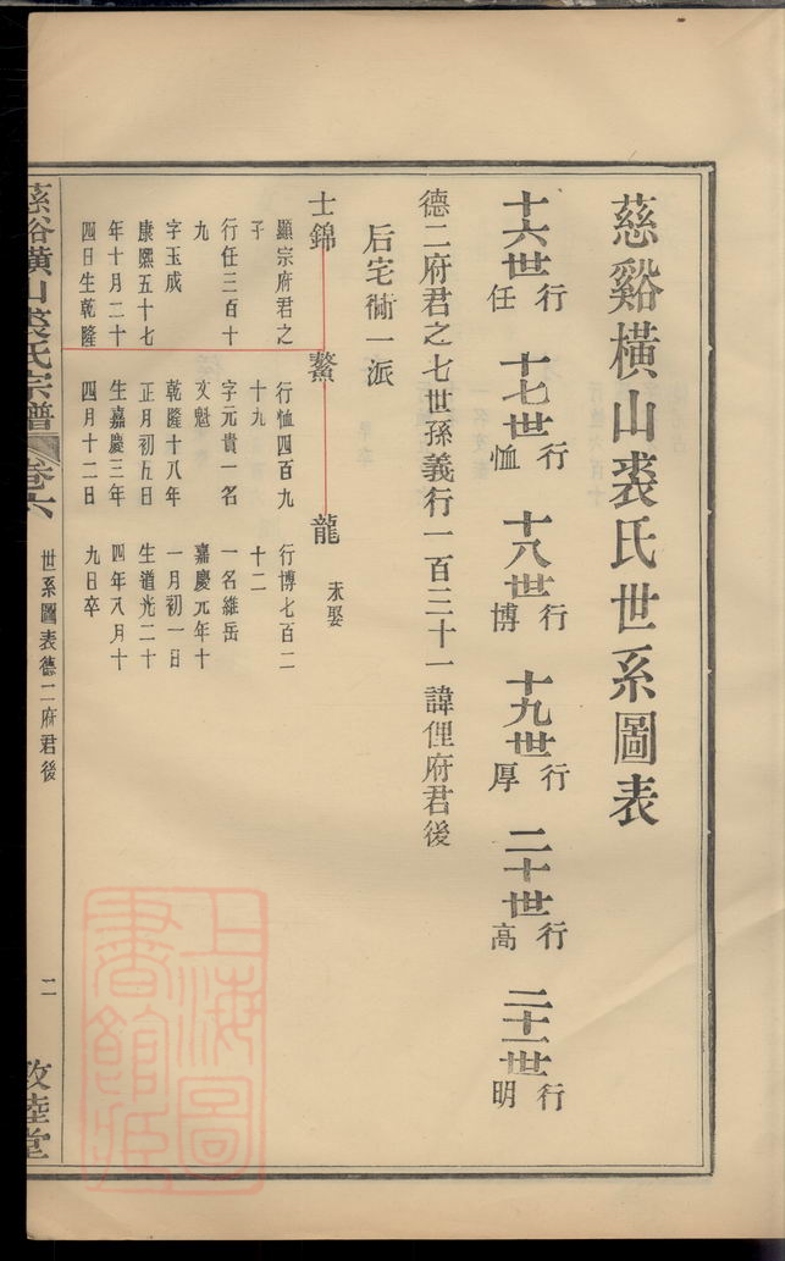 慈谿橫山裘氏世系圖表
十六世行任
十七世行恤
十八世行博
十九世行厚
二十世行高
二十一世行明
德二府君之七世孫義行一百三十一諱俚府君後
后宅衕一派
士錦
顯宗府君之
子
行任三百十
九
字玉成
康熙五十七
年十月二十
四日生乾隆
鰲
行恤四百九
十九
字元貴一名
文魁
乾隆十八年
正月初五日
生嘉慶三年
四月十二日
龍
未娶
行博七百二
十二
一名維岳
嘉慶元年十
一月初一日
生道光二十
四年八月十
九日卒
慈谿橫山裘氏宗譜
卷六
世系圖表德二府君後
二
敦睦堂
上海圖
書館藏